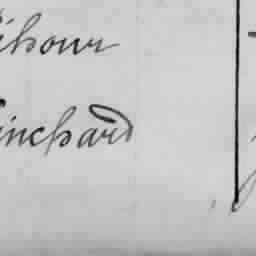 ihour
inchard